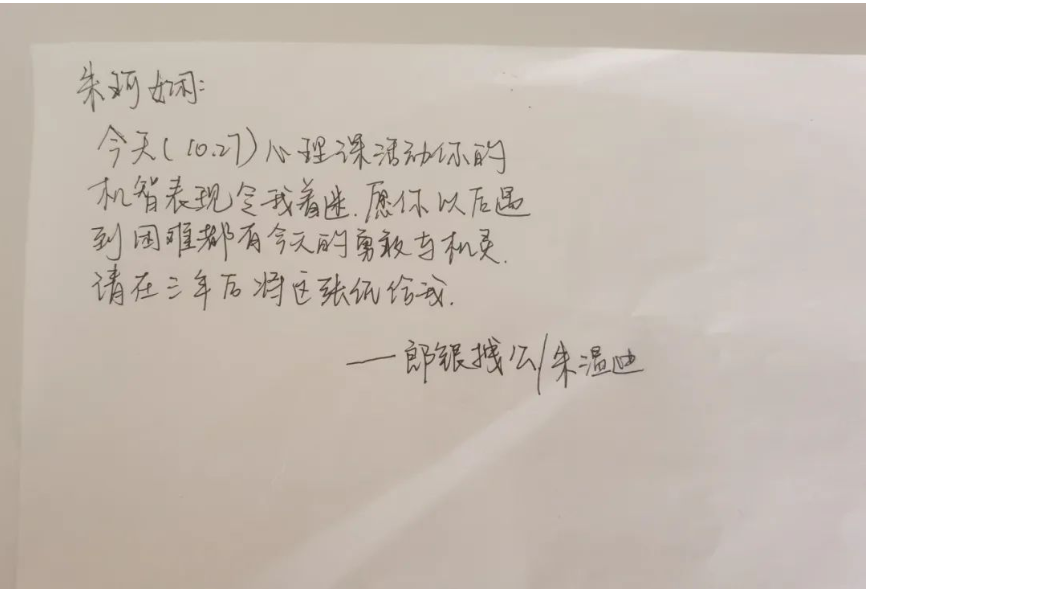 朱珂如闲:
今天(10.27)心理课活动你的
机智表现令我着迷.愿你以后遇
到困难都有今天的勇敢与机灵.
请在三年后将这张纸给我.
——郎银拽公/朱温迪